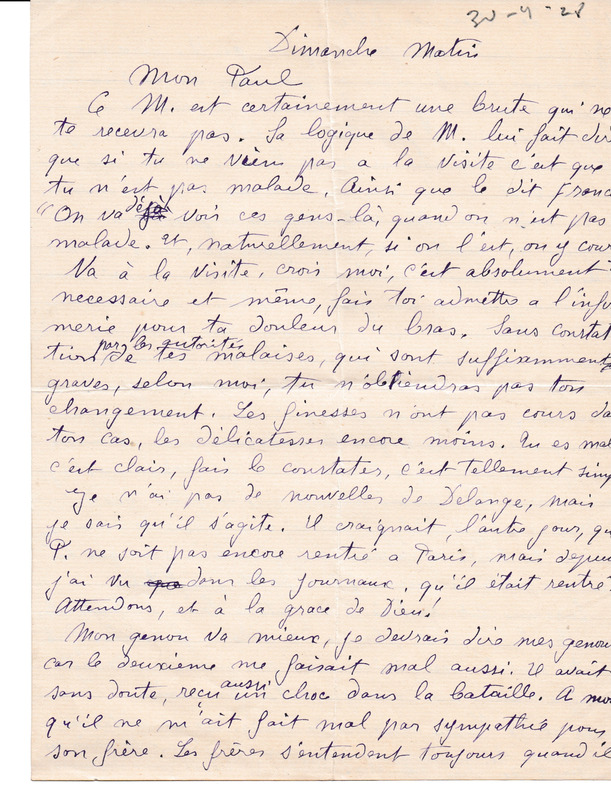 30-4-28
Dimanche Matin
Mon Paul
Ce M. est certainement une brute qui ne
te recevra pas. Sa logique de M. lui fait dir
que si tu ne viens pas a la visite c'est que
tu n'est pas malade. Ainsi que le dit Franc
"On va déjà voir ces gens-là, quand on n'est pas
malade. Et, naturellement, si on l'est, on y cour
Va à la visite, crois moi, c'est absolument
necessaire et même, fais toi admettre a l'infir
merie pour ta douleur du bras. Sans constat
tion par les autorités de tes malaises, qui sont suffisamment
graves, selon moi, tu n'obtiendras pas ton
changement. Les finesses n'ont pas cours da
ton cas, les délicatesses encore moins. Tu es mal
c'est clair, fais le constater, c'est tellement simp
Je n'ai pas de nouvelles de Delange, mais
je sais qu'il s'agite. Il craignait, l'autre jour, qu
P. ne soit pas encore rentré a Paris, mais depui
j'ai vu dans les journaux, qu'il était rentré.
Attendons, et à la grace de Dieu!
Mon genou va mieux, je devrais dire mes genou
car le deuxième me faisait mal aussi. Il avait
sans doute, reçu aussi un choc dans la bataille. A moi
qu'il ne m'ait fait mal par sympathie pour
son frère. Les frères s'entendent toujours quand il